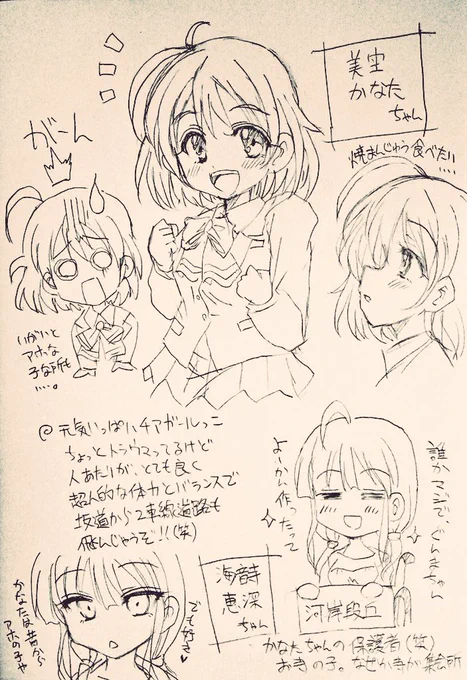 美空
かなた
ちゃん
焼まんじゅう食べたい
がーん
いがいと
アホな
子な所も
…。
@元気いっぱいチアガールっこ
ちょっとトラウマってるけど
人あたりが、とても良く
超人的な体力とバランスで
坂道から2車線道路も
飛んじゃうぞ!!(笑)
誰かマジで、ぐんまちゃん
よーかん作ったって
河岸段丘
海詩
恵深
ちゃん
でも好き♥
かなたは昔から
アホの子や
かなたちゃんの保護者(笑)
おきの子。なぜか寺が集会所